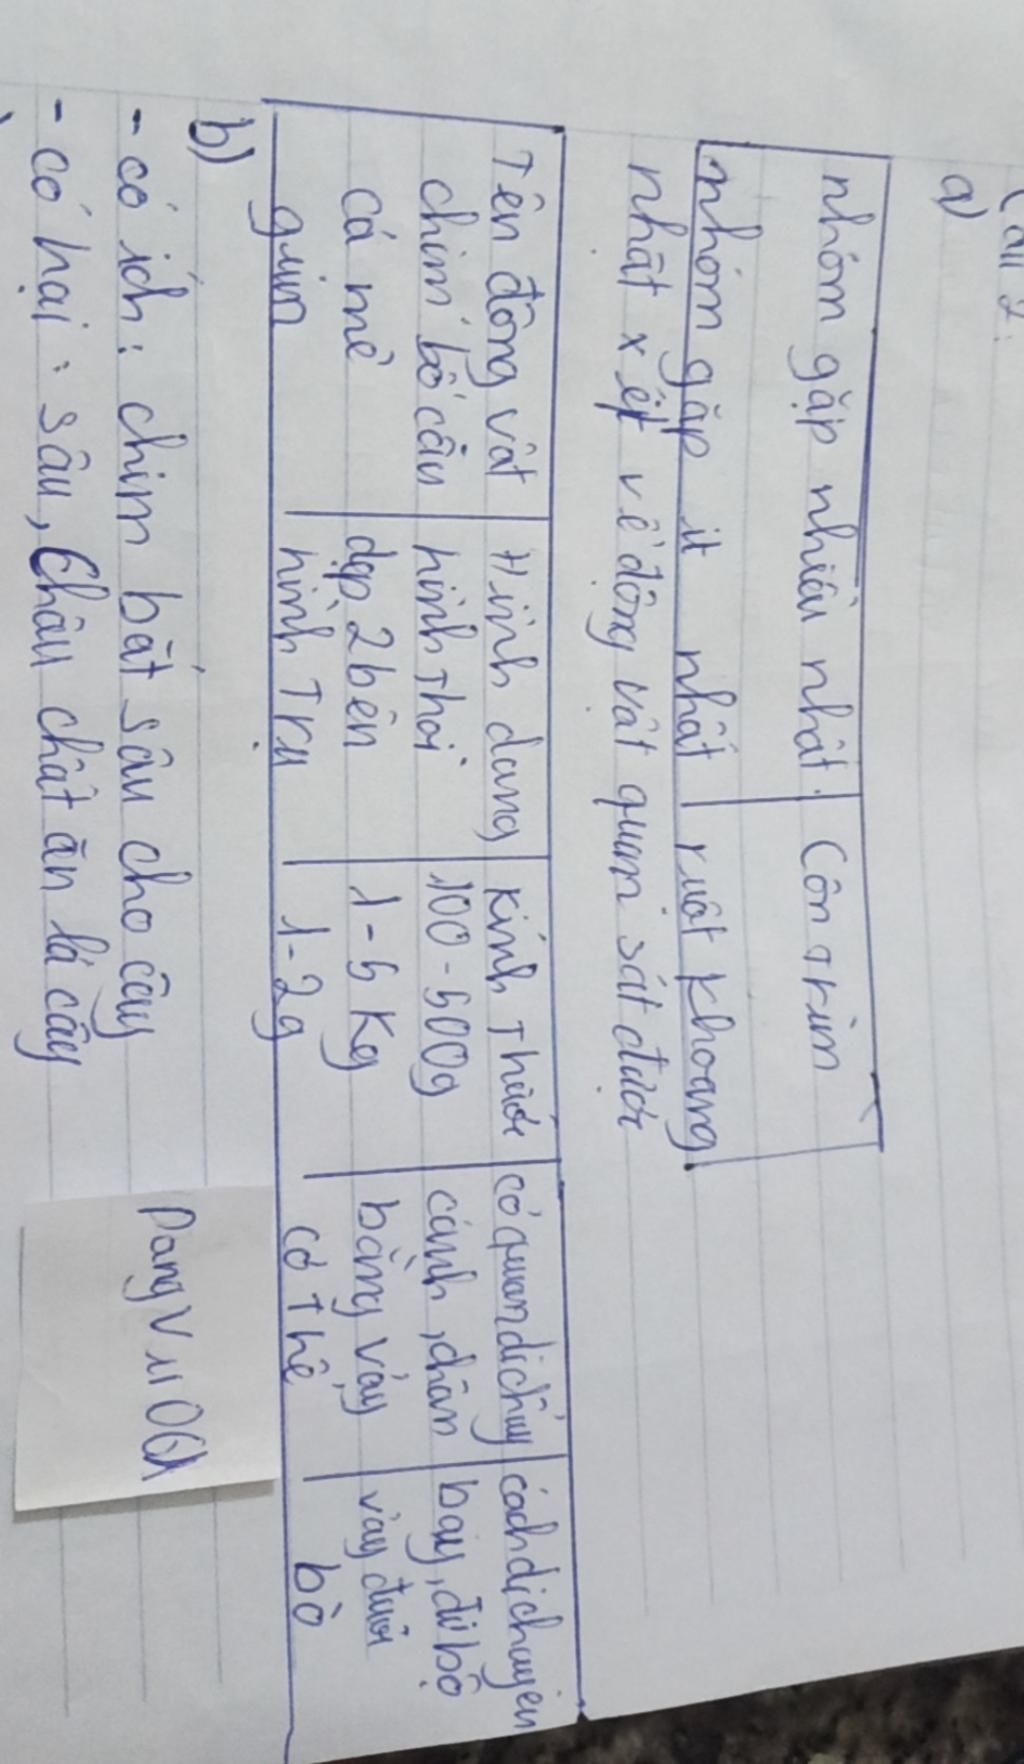 Câu 2:
a)
nhóm gặp nhiều nhất. Côn trùm
nhóm gặp ít nhất ruột khoang
nhật xét về động vật quan sát được
Tên động vật Hình dang kính thước cơ quan di chủy cách di chuyên
chim bồ câu hình thoi 100-500g cánh, chân bay, đi bộ
cá mè dẹp 2 bên 1-5 Kg bằng vảy vảy đuôi
giun hình Trụ 1-2g cơ thể bò
b)
- có ích: chim bắt sâu cho cây
- có hại: sâu, Châu chất ăn lá cây